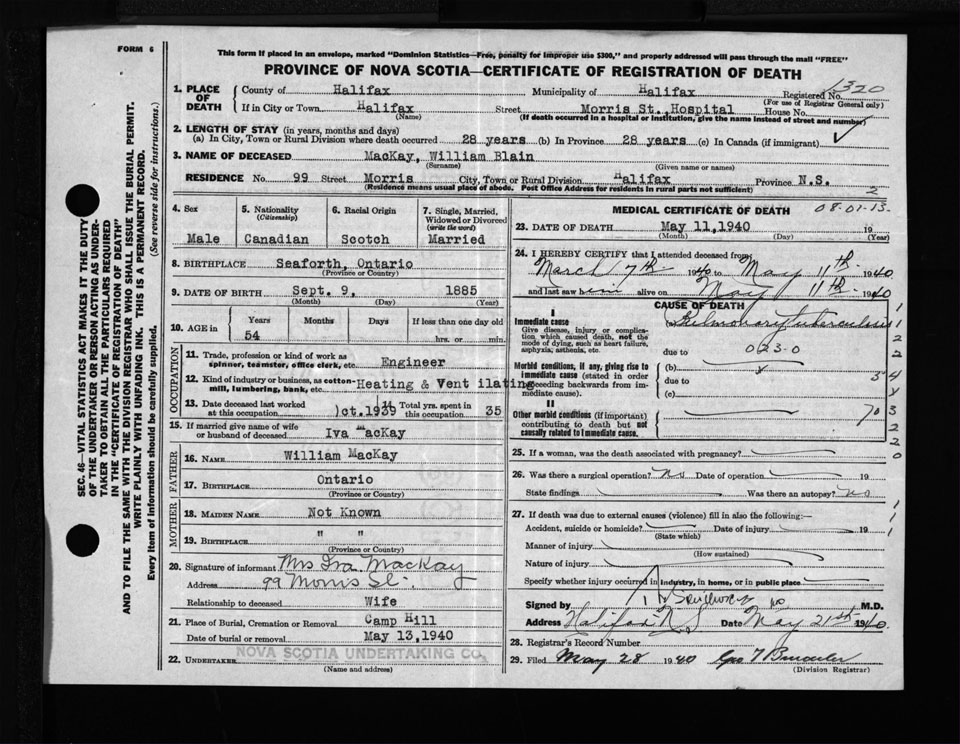 FORM 6
This form if placed in an envelope, marked "Dominion Statistics—Free, penalty for improper use $300," and properly addressed will pass through the mail "FREE"
PROVINCE OF NOVA SCOTIA—CERTIFICATE OF REGISTRATION OF DEATH
1. PLACE OF DEATH
County of Halifax Municipality of Halifax Registered No. 1320
(For use of Registrar General only)
If in City or Town Halifax Street Morris St., Hospital House No.
(Name) (If death occurred in a hospital or institution, give the name instead of street and number)
2. LENGTH OF STAY (in years, months and days)
(a) In City, Town or Rural Division where death occurred 28 years (b) In Province 28 years (c) In Canada (if immigrant)
3. NAME OF DECEASED MacKay, William Blain
(Surname) (Given name or names)
RESIDENCE No. 99 Street Morris City, Town or Rural Division Halifax Province N.S.
(Residence means usual place of abode. Post Office Address for residents in rural parts not sufficient)
2
4. Sex
Male
5. Nationality
(Citizenship)
Canadian
6. Racial Origin
Scotch
7. Single, Married, Widowed or Divorced
(write the word)
Married
8. BIRTHPLACE Seaforth, Ontario
(Province or Country)
9. DATE OF BIRTH Sept. 9, 1885
(Month) (Day) (Year)
10. AGE in
Years Months Days If less than one day old
54 hrs. or min.
OCCUPATION
11. Trade, profession or kind of work as spinner, teamster, office clerk, etc. Engineer
12. Kind of industry or business, as cotton-mill, lumbering, bank, etc. Heating & Vent ilating
13. Date deceased last worked at this occupation )ct.1939
14 Total yrs. spent in this occupation 35
15. If married give name of wife or husband of deceased Iva MacKay
FATHER
16. NAME William MacKay
17. BIRTHPLACE Ontario
(Province or Country)
MOTHER
18. MAIDEN NAME Not Known
19. BIRTHPLACE " "
(Province or Country)
20. Signature of informant Mrs Iva MacKay
Address 99 Morris St.
Relationship to deceased Wife
21. Place of Burial, Cremation or Removal Camp Hill
Date of burial or removal May 13,1940
22. UNDERTAKER NOVA SCOTIA UNDERTAKING CO.
(Name and address)
MEDICAL CERTIFICATE OF DEATH 08-01-13-
23. DATE OF DEATH May 11,1940 19
(Month) (Day) (Year)
24. I HEREBY CERTIFY that I attended deceased from
March 7th 1940 to May 11th 1940
and last saw him alive on May 11th 1940
CAUSE OF DEATH
I
Immediate cause
Give disease, injury or complication, which caused death, not the mode of dying, such as heart failure, asphyxia, asthenia, etc.
(a) Pulmonary tuberculosis
due to 023-0
Morbid conditions, if any, giving rise to immediate cause (stated in order proceeding backwards from immediate cause).
(b)
due to
(c)
II
Other morbid conditions (if important) contributing to death but not causally related to immediate cause.
25. If a woman, was the death associated with pregnancy?
26. Was there a surgical operation? No Date of operation 19
State findings Was there an autopsy? no
27. If death was due to external causes (violence) fill in also the following:—
Accident, suicide or homicide? Date of injury 19
(State which)
Manner of injury
(How sustained)
Nature of injury
Specify whether injury occurred in industry, in home, or in public place
Signed by M.D.
Address Halifax N.S. Date May 21st 1940
28. Registrar's Record Number
29. Filed May 28 1940 Geo
(Division Registrar)
SEC. 46—VITAL STATISTICS ACT MAKES IT THE DUTY
OF THE UNDERTAKER OR PERSON ACTING AS UNDER-
TAKER TO OBTAIN ALL THE PARTICULARS REQUIRED
IN THE "CERTIFICATE OF REGISTRATION OF DEATH"
AND TO FILE THE SAME WITH THE DIVISION REGISTRAR WHO SHALL ISSUE THE BURIAL PERMIT.
WRITE PLAINLY WITH UNFADING INK. THIS IS A PERMANENT RECORD.
Every item of information should be carefully supplied. (See reverse side for instructions.)